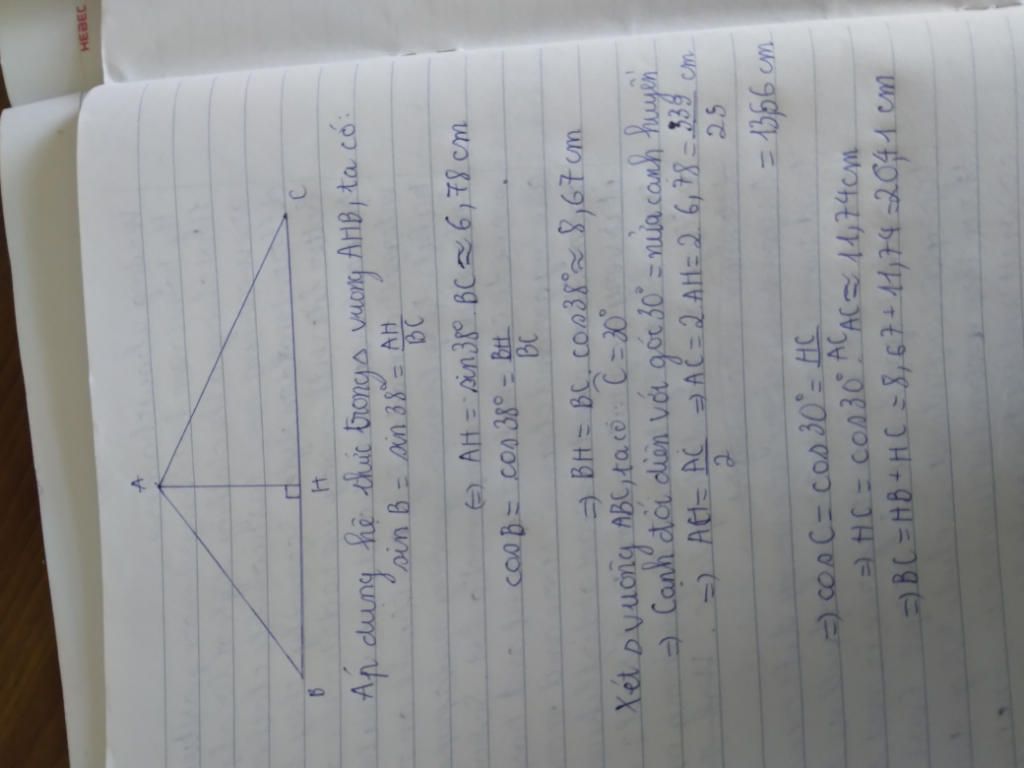 HEBEC
A
B
H
C
Áp dụng hệ thức trong vuông AHB, ta có:
sin B = sin 38° = AH/BC
(=) AH = sin 38° BC ≈ 6,78 cm
cos B = cos 38° = BH/BC
=) BH = BC . cos 38° ≈ 8,67 cm
Xét △ vuông ABC, ta có: Ĉ = 30°
=) Cạnh đối diện với góc 30° = nửa cạnh huyền
=) AH = AC/2 =) AC = 2 AH = 2. 6,78 = 339/25 cm
= 13,56 cm
=) cos C = cos 30° = HC/AC
=) HC = cos 30° AC ≈ 11,74 cm
=) BC = HB + HC = 8,67 + 11,74 = 20,41 cm